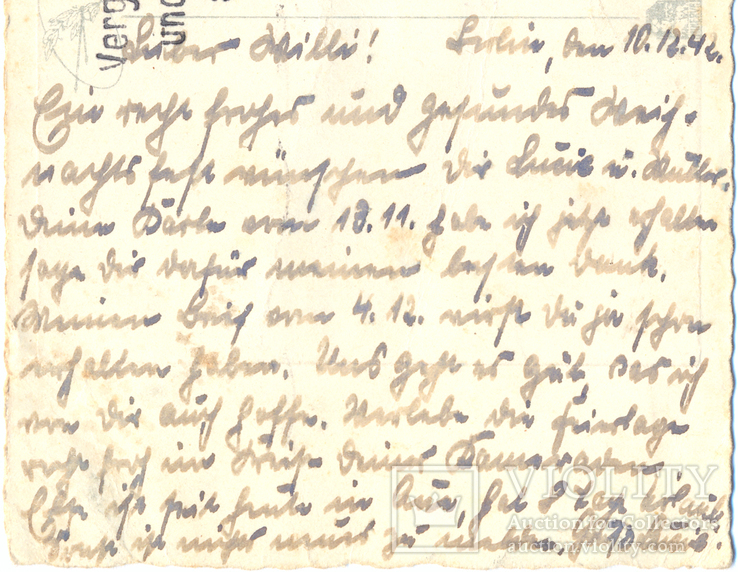 Verg
und
Lieber Willi! Berlin, den 10.12.42.
Ein recht frohes und gesundes Weih-
nachtsfest wünschen Dir Lucie u. Mutter.
Deine Karte vom 18.11. habe ich jetzt erhalten
sage Dir dafür meinen besten Dank.
Meinen Brief vom 4.12. wirst Du ja schon
erhalten haben. Uns geht es gut, was ich
von Dir auch hoffe. Verlebe die Feiertage
recht froh im Kreise Deiner Kameraden.
ist seit heute in hat 8 Tage Urlaub.
Sonst ist nichts neues zu
VIOLITY
Auction for Collectors
auction.violity.com